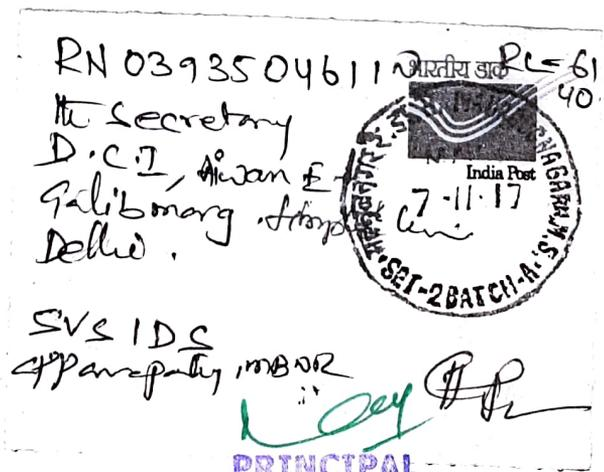 RN 0393504611
भारतीय डाक
RL-61
40
The Secretary
D.C.I, Aiwan E
Galib marg
Delhi.
India Post
7-11-17
SET-2 BATCH-A.
SVS IDS
Appanapally, MBNR
PRINCIPAL